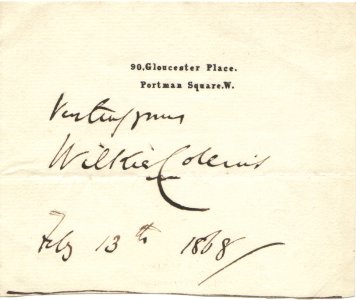 90, Gloucester Place.
Portman Square. W.
Very truly yours
Wilkie Collins
Feby 13th 1868